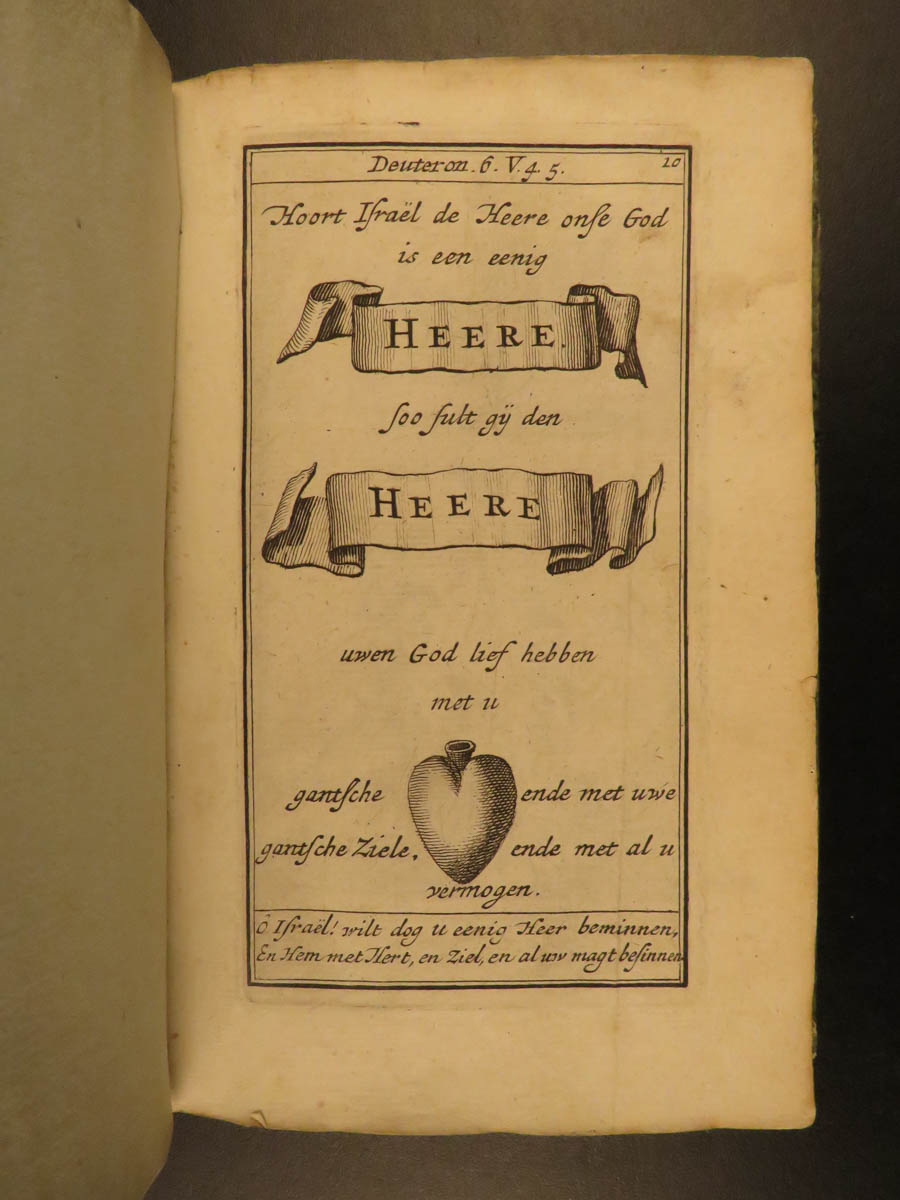 Deuteron. 6. V. 4. 5. 10
Hoort Iſraël de Heere onſe God
is een eenig
HEERE.
ſoo ſult gÿ den
HEERE
uwen God lief hebben
met u
gantſche ende met uwe
gantſche Ziele, ende met al u
vermogen.
O Iſraël! wilt dog u eenig Heer beminnen,
En Hem met Hert, en Ziel, en al uw magt beſinnen